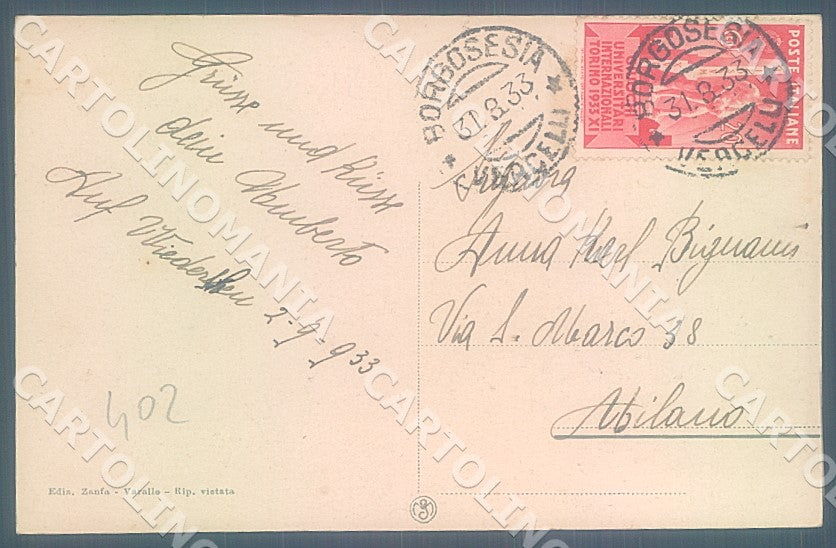 Grüsse und Küsse
dein Umberto
Auf Wiedersehen 2-9-933
402
Ediz. Zanfa - Varallo - Rip. vietata
BORGOSESIA
31.8.33.
VERCELLI
POSTE ITALIANE
UNIVERSITARI
INTERNAZIONALI
TORINO 1933 XI
BORGOSESIA
31.8.33
VERCELLI
Signora
Anna Karl Bignami
Via S. Marco 38
Milano
CARTOLINOMANIA